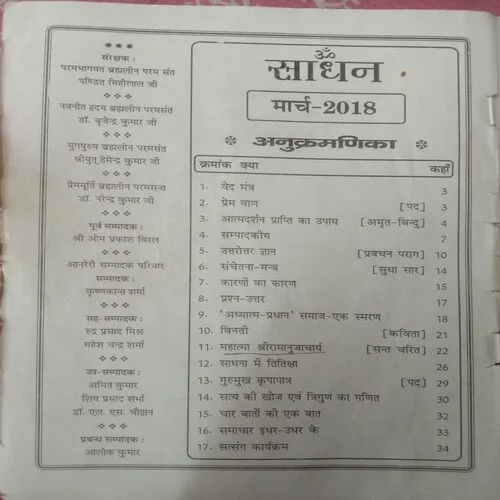 संरक्षक :
परमभागवत ब्रह्मलीन परम संत
पण्डित मिहीलाल जी
नवनीत हृदय ब्रह्मलीन परमसंत
डॉ. बृजेन्द्र कुमार जी
युगपुरुष ब्रह्मलीन परमसंत
श्रीयुत् हेमेन्द्र कुमार जी
प्रेममूर्ति ब्रह्मलीन परमसन्त
डॉ. नरेन्द्र कुमार जी
पूर्व सम्पादक :
श्री ओम प्रकाश बिरल
आनरेरी सम्पादक परिवार
सम्पादक :
कृष्णकान्त शर्मा
सह-सम्पादक :
रुद्र प्रसाद मिश्र
महेश चन्द्र शर्मा
उप-सम्पादक :
अमित कुमार
शिव प्रसाद शर्मा
डॉ. एल. एस. चौहान
प्रबन्ध सम्पादक :
आलोक कुमार
ॐ
साधन
मार्च-2018
अनुक्रमणिका
क्रमांक क्या कहाँ
1. वेद मंत्र 3
2. प्रेम वाण [पद] 3
3. आत्मदर्शन प्राप्ति का उपाय [अमृत-बिन्दु] 4
4. सम्पादकीय 7
5. उत्तरोत्तर ज्ञान [प्रवचन पराग] 10
6. संचेतना-मन्त्र [सुधा सार] 14
7. कारणों का कारण 15
8. प्रश्न-उत्तर 17
9. 'अध्यात्म-प्रधान' समाज-एक स्मरण 18
10. विनती [कविता] 21
11. महात्मा श्रीरामानुजाचार्य [सन्त चरित] 22
12. साधना में तितिक्षा 26
13. गुरुमुख कृपापात्र [पद] 29
14. सत्य की खोज एवं त्रिगुण का गणित 30
15. चार बातों की एक बात 32
16. समाचार इधर-उधर के 33
17. सत्संग कार्यक्रम 34